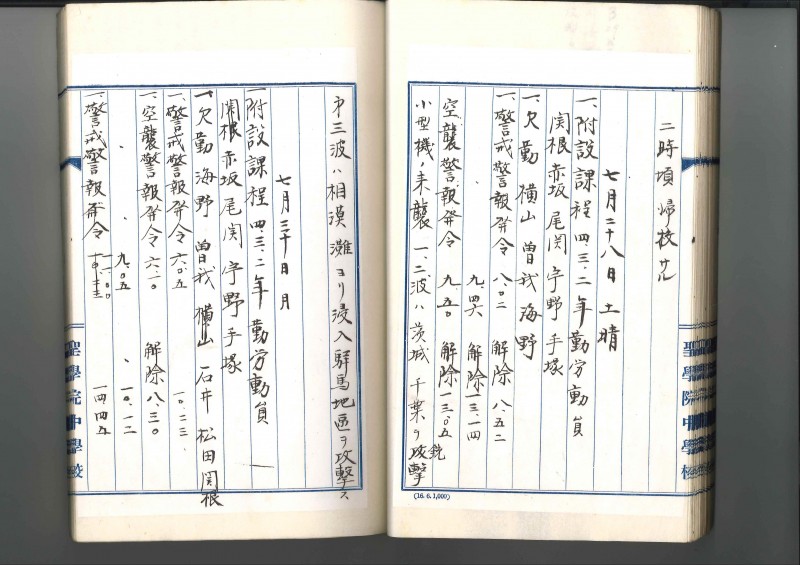 二時頃帰校サル
七月二十八日 土 晴
一、附設課程四三、二年勤労動員
関根 赤坂 尾関 宇野 手塚
一、欠勤 横山 曽我 海野
一、警戒警報発令 八.〇二 解除 八.五二
、 九.四六 解除 一三.一四
空襲警報発令 九.五〇 解除 一三.〇五
小型機ノ来襲 一、二波ハ茨城 千葉ヲ銃攻撃
(16. 6. 1,000)
聖學院中學校
オ三波ハ相漠灘ヨリ浸入群馬地區ヲ攻撃ス
七月三十日 月
一、附設課程 四三、二年 勤労動員
関根 赤坂 尾関 宇野 手塚
一、欠勤 海野 曽我 横山 石井 松田 関根
一、警戒警報発令 六.〇五 一〇.二三
一、空襲警報発令 六.一〇 解除 八.三〇
、 、 九.〇五 、 一〇.一二
一、警戒警報発令 一四四五
聖學院中學校